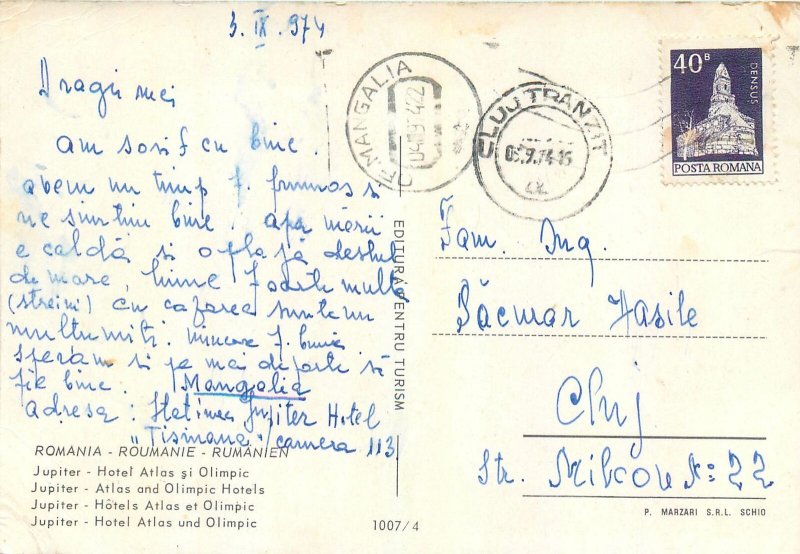 3. IX. 974
Dragii mei
am sosit cu bine.
avem un timp f. frumos si
ne simtim bine. apa mării
e caldă si o plajă destul
de mare, lume foarte multa
(streini) cu cazarea suntem
multumiti. mincare f. buna
speram si pe mai departe să
fie bine. Mangalia
adresa: Statiunea Jupiter Hotel
"Tismana" camera 113.
ROMANIA - ROUMANIE - RUMÄNIEN
Jupiter - Hotel Atlas și Olimpic
Jupiter - Atlas and Olimpic Hotels
Jupiter - Hôtels Atlas et Olimpic
Jupiter - Hotel Atlas und Olimpic
EDITURA PENTRU TURISM
1007/4
MANGALIA
CLUJ TRANZIT
40 B
DENSUS
POSTA ROMANA
Fam. Ing.
Băcmar Vasile
Cluj
Str. Milcov No: 22
P. MARZARI S.R.L. SCHIO